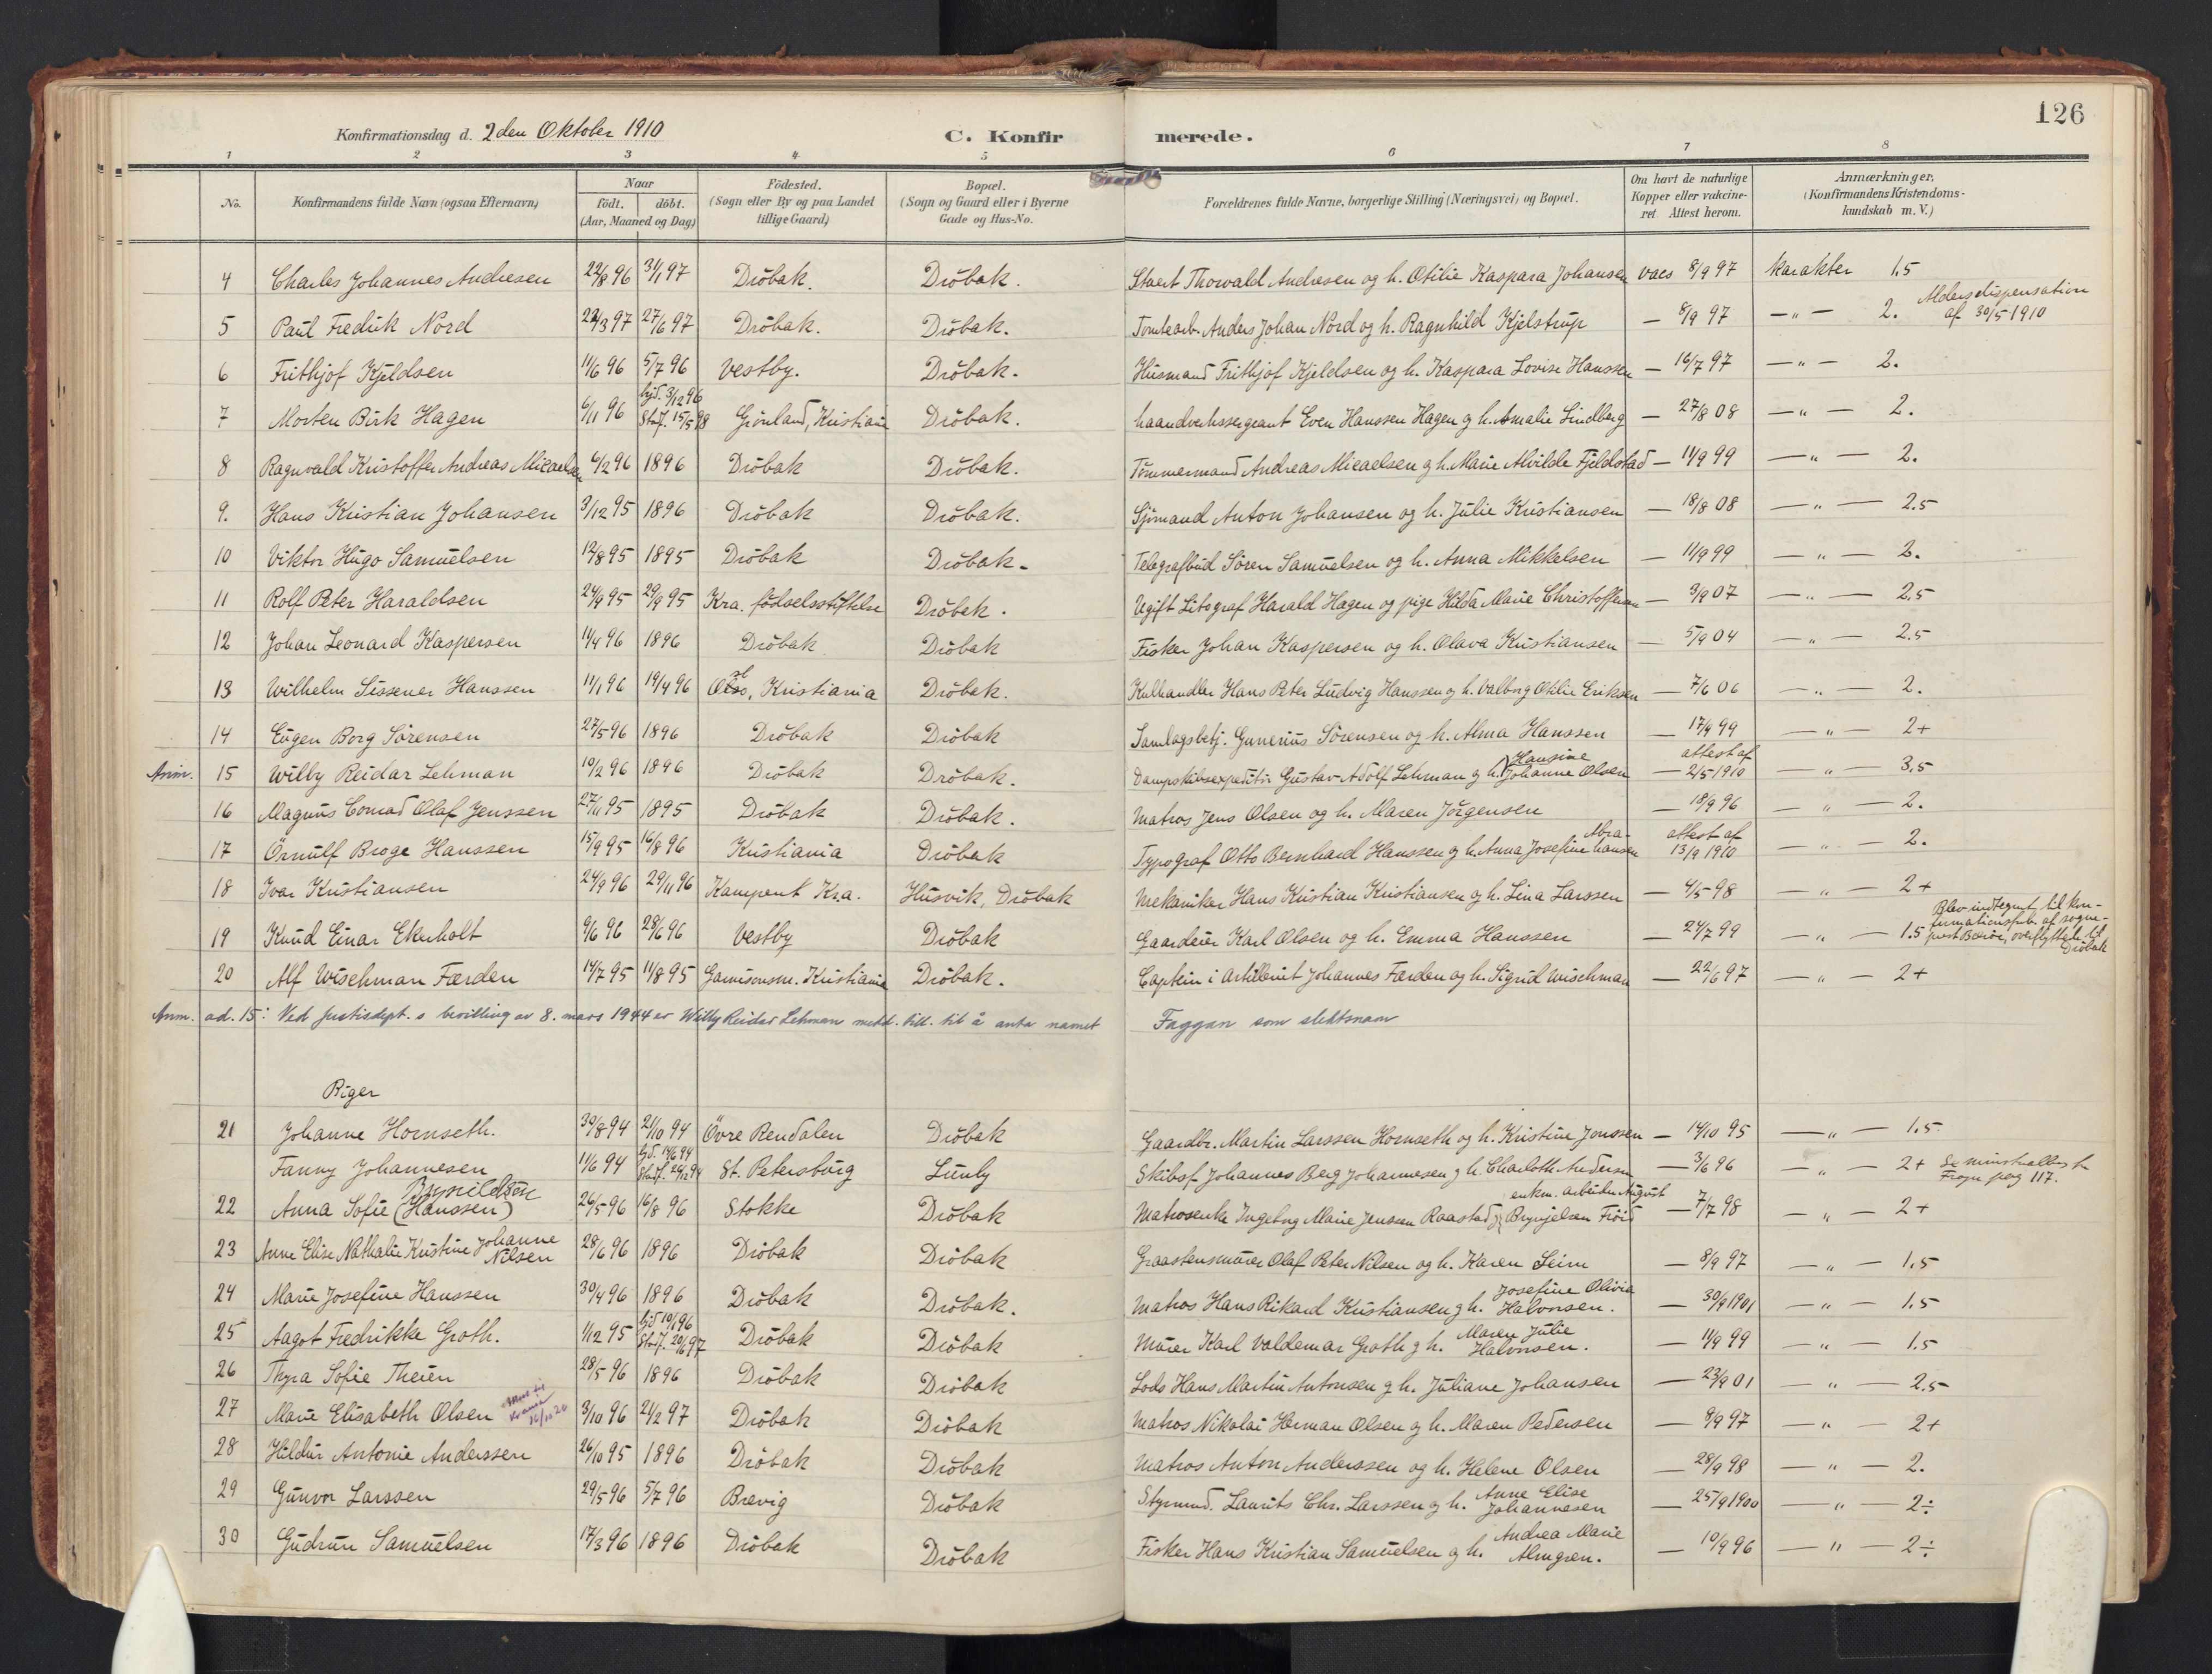 126
Konfirmationsdag d. 2den Oktober 1910 C. Konfirmerede.
1 2 3 4 5 6 7 8
No. Konfirmandens fulde Navn (ogsaa Efternavn) Naar födt. döbt. (Aar, Maaned og Dag) Födested. (Sogn eller By og paa Landet tillige Gaard) Bopæl. (Sogn og Gaard eller i Byerne Gade og Hus-No. Forældrenes fulde Navne, borgerlige Stilling (Næringsvei) og Bopæl. Om havt de naturlige Kopper eller vakcineret Attest herom. Anmærkninger. (Konfirmandens Kristendomskundskab m. V.)
4 Charles Johannes Andresen 22/8 96 31/1 97 Dröbak. Dröbak. Thorvald Andresen og h. Otilie Kaspara Johansen vacs 8/9 97 Karakter 1.5
5 Paul Fredrik Nord 22/3 97 27/6 97 Dröbak. Dröbak. Tomtearb. Anders Johan Nord og h. Ragnhild Kjelstrup — 8/9 97 — " — 2. Aldersdispensation af 30/5 1910
6 Frithjof Kjeldsen 11/6 96 5/7 96 Vestby. Dröbak. Husmand Frithjof Kjeldsen og h. Kaspara Lovise Hanssen — 16/7 97 — " — 2.
7 Morten Birk Hagen 6/11 96 hjd. 3/12 96 Stad. 15/5 98 Grönland, Kristiania Dröbak. Haandverkssergeant Even Hanssen Hagen og h. Amalie Lindberg — 27/8 08 — " — 2.
8 Ragnvald Kristoffer Andreas Micaelsen 6/2 96 1896 Dröbak Dröbak. Tömmermand Andreas Micaelsen og h. Marie Alvilde Fjeldstad — 11/9 99 — " — 2.
9. Hans Kristian Johansen 3/12 95 1896 Dröbak Dröbak. Sjömand Anton Johansen og h. Julie Kristiansen — 18/8 08 — " — 2.5
10 Viktor Hugo Samuelsen 12/8 95 1895 Dröbak Dröbak. Telegrafbud Sören Samuelsen og h. Anna Mikkelsen — 11/9 99 — " — 2.
11 Rolf Peter Haraldsen 24/9 95 29/9 95 Kra. födselsstiftelse Dröbak. Ugift Litograf Harald Hagen og pige Hilda Marie Christoffersen — 3/9 07 — " — 2.5
12 Johan Leonard Kaspersen 14/4 96 1896 Dröbak Dröbak Fisker Johan Kaspersen og h. Olava Kristiansen — 5/9 04 — " — 2.5
13 Wilhelm Sissener Hanssen 11/1 96 19/4 96 Oslo, Kristiania Dröbak. Kulhandler Hans Peter Ludvig Hanssen og h. Valborg Otilie Eriksen — 7/6 06 — " — 2.
14 Eugen Borg Sörensen 27/5 96 1896 Dröbak Dröbak Samlagsbetj. Gunerius Sörensen og h. Alma Hanssen — 17/9 99 — " — 2+
Anm. 15 Willy Reidar Lehman 10/2 96 1896 Dröbak Dröbak. Dampskibsexpeditör Gustav Adolf Lehman og h. Hansine Johanne Olsen attest af — 2/5 1910 — " — 3.5
16 Magnus Conrad Olaf Jenssen 27/11 95 1895 Dröbak Dröbak. Matros Jens Olsen og h. Maren Jörgensen — 18/9 96 — " — 2.
17 Örnulf Broge Hanssen 15/9 95 16/8 96 Kristiania Dröbak Typograf Otto Bernhard Hanssen og h. Anna Josefine Abrahamsen attest af 13/9 1910 — " — 2.
18 Ivar Kristiansen 24/9 96 29/11 96 Kampen Kra. Husvik, Dröbak Mekaniker Hans Kristian Kristiansen og h. Lina Larssen — 4/5 98 — " — 2+
19 Knud Einar Ekeholt 9/6 96 28/6 96 Vestby Dröbak Gaardeier Karl Olsen og h. Emma Hanssen — 24/7 99 — " — 1.5 Blev indtegnet til konfirmationsforb. af sognepræst overflyttede til Dröbak
20 Alf Wischman Færden 14/7 95 11/8 95 Garnisonsm. Kristiania Dröbak. Captein i Artilleriet Johannes Færden og h. Sigrid Wischman — 22/6 97 — " — 2+
Anm. ad. 15: Ved Justisdept.s bevilling av 8. mars 1944 er Willy Reidar Lehman medd. till. til å anta navnet Faggan som slektsnavn
Piger
21 Johanne Hornseth. 30/8 94 21/10 94 Övre Rendalen Dröbak Gaardbr. Martin Larssen Hornseth og h. Kristine Jonssen — 14/10 95 — " — 1.5
Fanny Johannesen 11/6 94 hjd. 14/6 94 Stadf. 26/12 94 St. Petersburg Lunby Skibsf. Johannes Berg Johannesen og h. Charlotte Andersen — 3/6 96 — " — 2+ Frogn pag 117.
22 Anna Sofie (Hanssen) Brynildsen 26/5 96 16/8 96 Stokke Dröbak Matrosenke Ingeborg Marie Jenssen Raastad, enkm. arbeider August Brynjelsen Fröid — 7/7 98 — " — 2+
23 Anne Elise Nathalie Kristine Johanne Nilsen 28/6 96 1896 Dröbak Dröbak Graastensmurer Olaf Peter Nilsen og h. Karen Seim — 8/9 97 — " — 1.5
24 Marie Josefine Hanssen 30/4 96 1896 Dröbak Dröbak. Matros Hans Rikard Kristiansen og h. Josefine Olivia Halvorsen. — 30/9 1901 — " — 1.5
25 Aagot Fredrikke Groth. 1/12 95 hjd 10/1 96 Stadf. 20/6 97 Dröbak Dröbak Murer Karl Valdemar Groth og h. Maren Julie Halvorsen. — 11/9 99 — " — 1.5
26 Thyra Sofie Theien 28/5 96 1896 Dröbak Dröbak Lods Hans Martin Antonsen og h. Juliane Johansen — 23/9 01 — " — 2.5
27 Marie Elisabeth Olsen 3/10 96 21/2 97 Dröbak Dröbak Matros Nikolai Herman Olsen og h. Maren Pedersen — 8/9 97 — " — 2+
28 Hildur Antonie Anderssen 26/10 95 1896 Dröbak Dröbak Matros Anton Anderssen og h. Helene Olsen — 28/9 98 — " — 2.
29 Gunvor Larssen 29/5 96 5/7 96 Brevig Dröbak Styrmd. Laurits Chr. Larssen og h. Anne Elise Johannesen — 25/9 1900 — " — 2÷
30 Gudrun Samuelsen 17/3 96 1896 Dröbak Dröbak Fisker Hans Kristian Samuelsen og h. Andrea Marie Almgren. — 10/9 96 — " — 2÷